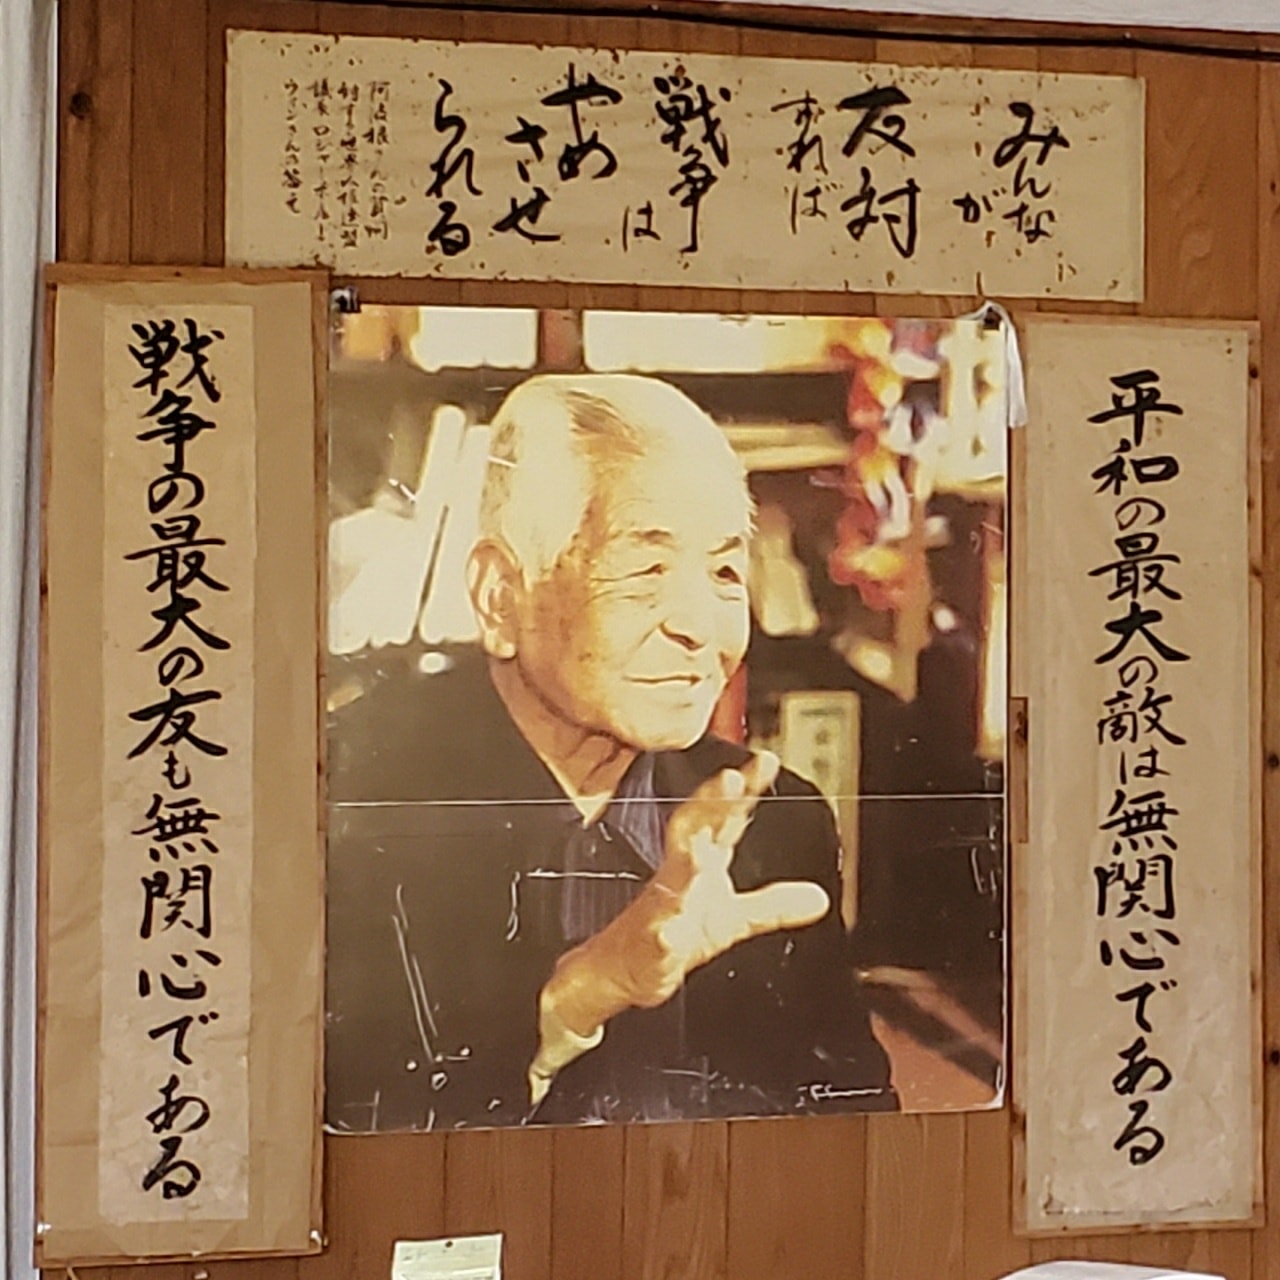 みんな
が
反対
すれば
戦争
は
やめ
させ
られる
阿波根さんの質問に
対する世界人権連盟
議長ロジャーボルド
ウィンさんの答え
平和の最大の敵は無関心である
戦争の最大の友も無関心である